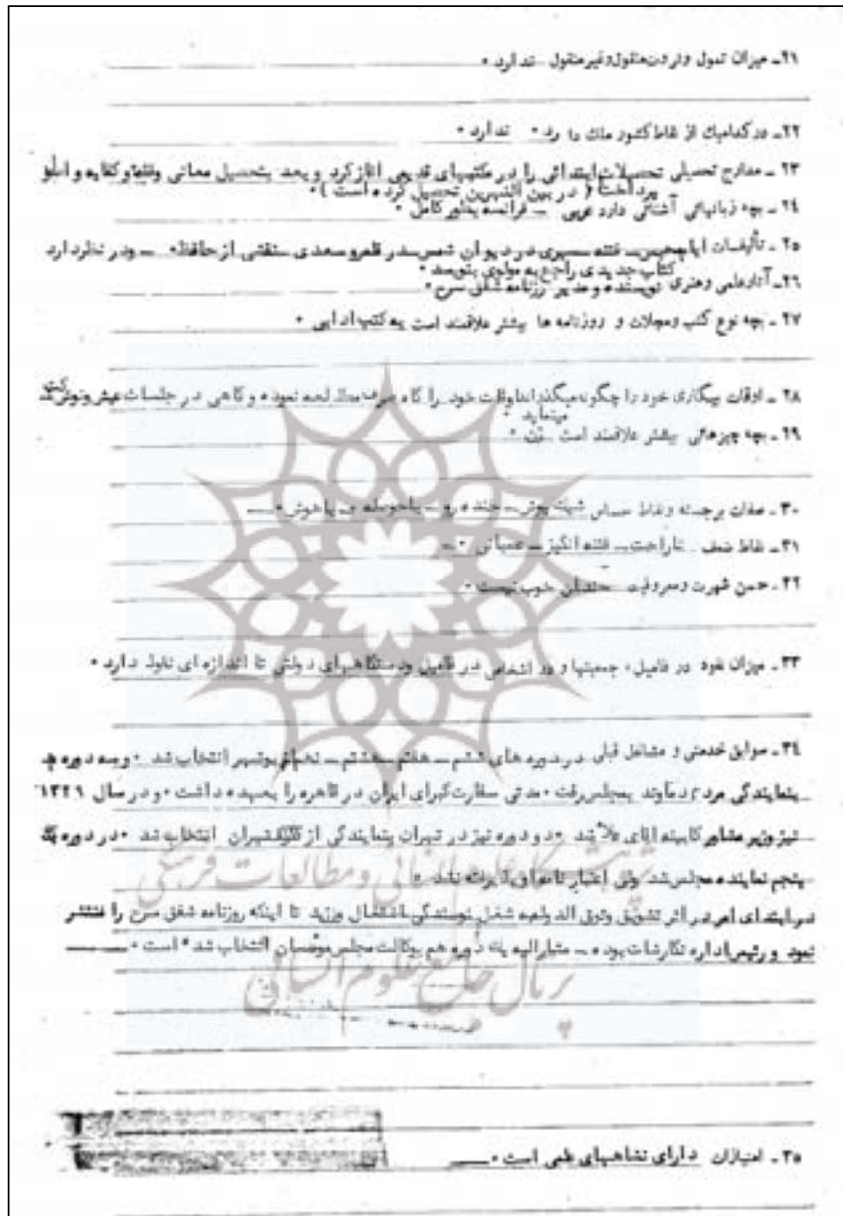 ۲۱ـ میزان تمول و ثروت منقول و غیر منقول ندارد ۰
۲۲ـ در کدامیک از نقاط کشور ملک دارد ۰ ندارد ۰
۲۳ ـ مدارج تحصیلی تحصیلات ابتدائی را در مکتبهای قدیمی آغاز کرد و بعد بتحصیل معانی و
پرداخت ( در بین النهرین تحصیل کرده است ) ۰
۲٤ ـ بچه زبانهائی آشنائی دارد عربی ـ فرانسه بطور کامل ۰
۲۵ ـ تألیفات ایام محبس ـ فتنه ـ سیری در دیوان شمس ـ در قلمرو سعدی ـ نقشی از حافظ ۰ ـ و در نظر دارد
کتاب جدیدی راجع به مولوی بنویسد ۰
۲٦ـ آثار علمی و هنری نویسنده و مدیر روزنامه شفق سرخ ۰
۲۷ ـ بچه نوع کتب و مجلات و روزنامه ها بیشتر علاقمند است به کتب ادابی ۰
۲۸ ـ اوقات بیکاری خود را چگونه میگذراند اوقات خود را گاه صرف مطالعه نموده و گاهی در جلسات عیش و نوش
مینماید ۰
۲۹ ـ بچه چیزهائی بیشتر علاقمند است زن ۰
۳۰ ـ صفات برجسته و نقاط حساس شیک پوش ـ خنده رو ـ با حوصله ـ باهوش ۰
۳۱ـ نقاط ضعف ناراحت ـ فتنه انگیز ـ عصبانی ۰
۳۲ ـ حسن شهرت و معروفیت چندان خوب نیست ۰
۳۳ ـ میزان نفوذ در فامیل ، جمعیتها و در اشخاص در فامیل و دستگاههای دولتی تا اندازه ای نفوذ دارد ۰
۳٤ـ سوابق خدمتی و مشاغل قبلی در دوره های ششم ـ هفتم ـ هشتم ـ نهم از بوشهر انتخاب شد ۰ و سه دوره
بنمایندگی مردم دماوند بمجلس رفت ۰ مدتی سفارت کبرای ایران در قاهره را بعهده داشت ۰ و در سال
نیز وزیر مشاور کابینه آقای علاء شد ۰ دو دوره نیز در تهران بنمایندگی از تهران انتخاب شد ۰ در دوره
پنجم نماینده مجلس شد ولی اعتبار نامه او پذیرفته نشد ۰
در ابتدای امر در اثر تشویق وثوق الدوله به شغل نویسندگی اشتغال ورزید تا اینکه روزنامه شفق سرخ را منتشر
نمود و رئیس اداره نگارشات بوده ـ مشارالیه یک دوره هم بوکالت مجلس موسسان انتخاب شده است ۰
پژوهشگاه علوم انسانی و مطالعات فرهنگی
پرتال جامع علوم انسانی
۳۵ـ امتیازات دارای نشانهای علمی است ۰